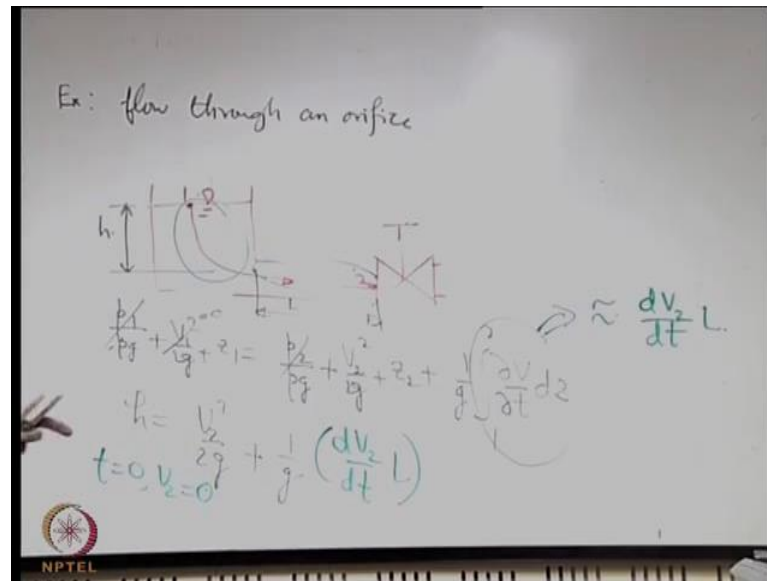 Ex: flow through an orifice
h
1
L
2
p1/ρg + V1²/2g + z1 = p2/ρg + V2²/2g + z2 + 1/g ∫ ∂V/∂t ds
≈ dV2/dt L.
h = V2²/2g + 1/g (dV2/dt L)
t=0, V2=0
NPTEL